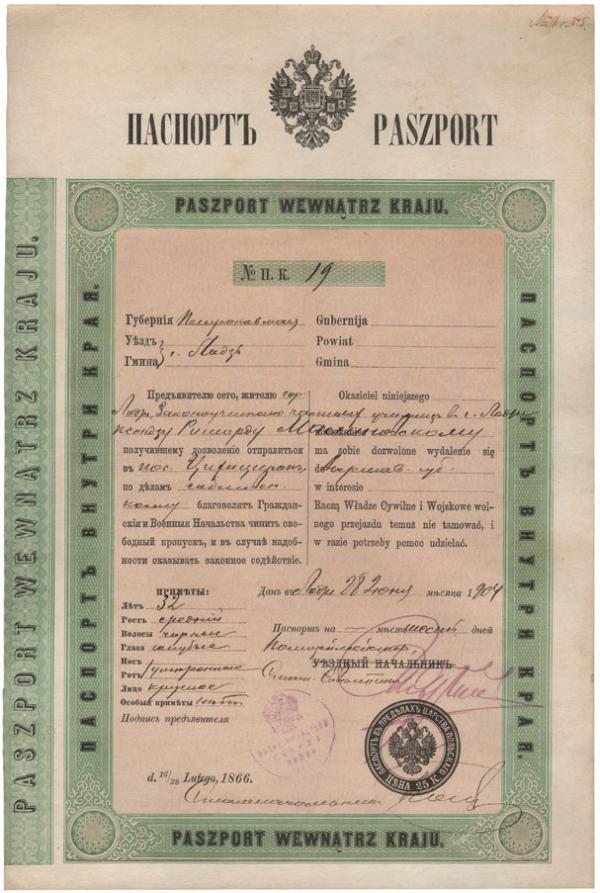 ПАСПОРТЪ PASZPORT
PASZPORT WEWNĄTRZ KRAJU.
PASZPORT WEWNĄTRZ KRAJU.
ПАСПОРТЪ ВНУТРИ КРАЯ.
ПАСПОРТЪ ВНУТРИ КРАЯ.
№ П. К. 19
Губернія Петроковская Gubernija
Уѣздъ Powiat
Гмина г. Лодзь Gmina
Предъявителю сего, жителю гор. Okaziciel niniejszego
Лодзи, Законоучителю частныхъ училищъ въ г. Лодзи
ксендзу Ришарду
получившему дозволеніе отправиться ma sobie dozwolone wydalenie się
въ пос. do Варшав. губ.
по дѣламъ w interesie
благоволятъ Граждан- Raczą Władze Cywilne i Wojskowe wol-
скія и Военныя Начальства чинить сво- nego przejazdu temuż nie tamować, i
бодный пропускъ, и въ случаѣ надоб- w razie potrzeby pomoc udzielać.
ности оказывать законное содѣйствіе.
ПРИМѢТЫ: Данъ въ Лодзи 28 Июня мѣсяца 1904
Лѣтъ 32
Ростъ средній Паспортъ на — мѣст шесть дней
Волосы черные
Глаза голубые УѢЗДНЫЙ НАЧАЛЬНИКЪ
Носъ
Ротъ умѣренные
Лицо круглое
Особыя примѣты нѣтъ
Подпись предъявителя
ПАСПОРТЪ ВЪ ПРЕДѢЛАХЪ ЦАРСТВА ПОЛЬСКАГО
ЦѢНА 25 К.
d. 16/28 Lutego, 1866.
PASZPORT WEWNĄTRZ KRAJU.